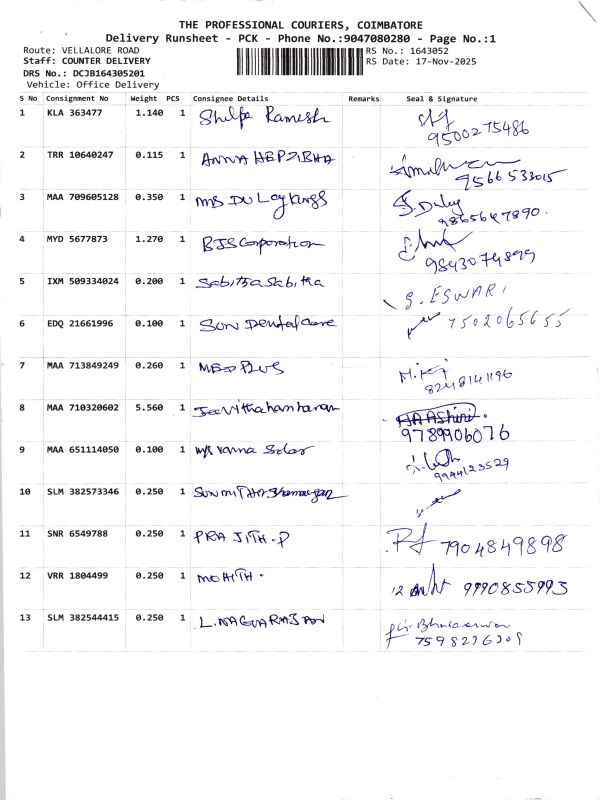 THE PROFESSIONAL COURIERS, COIMBATORE
Delivery Runsheet - PCK - Phone No.:9047080280 - Page No.:1
Route: VELLALORE ROAD
RS No.: 1643052
Staff: COUNTER DELIVERY
RS Date: 17-Nov-2025
DRS No.: DCJB164305201
Vehicle: Office Delivery
S No Consignment No Weight PCS Consignee Details Remarks Seal & Signature
1 KLA 363477 1.140 1 Shilpa Ramesh
9500275486
2 TRR 10640247 0.115 1 ANNA HEPZIBHA
9566533015
3 MAA 709605128 0.350 1 MS DU Loykings
9865647890.
4 MYD 5677873 1.270 1 BJS Corporation
9843074899
5 IXM 509334024 0.200 1 Sabitha Sabitha G. ESWARI
6 EDQ 21661996 0.100 1 SUN Dental care 7502065655
7 MAA 713849249 0.260 1 MEDPLUS
8248141196
8 MAA 710320602 5.560 1
9789906076
9 MAA 651114050 0.100 1 M/s Solar
9944123529
10 SLM 382573346 0.250 1
11 SNR 6549788 0.250 1 PRAJITH.P 7904849898
12 VRR 1804499 0.250 1 MOHITH. 9990855993
13 SLM 382544415 0.250 1 L.NAGUARAJAN
7598236309